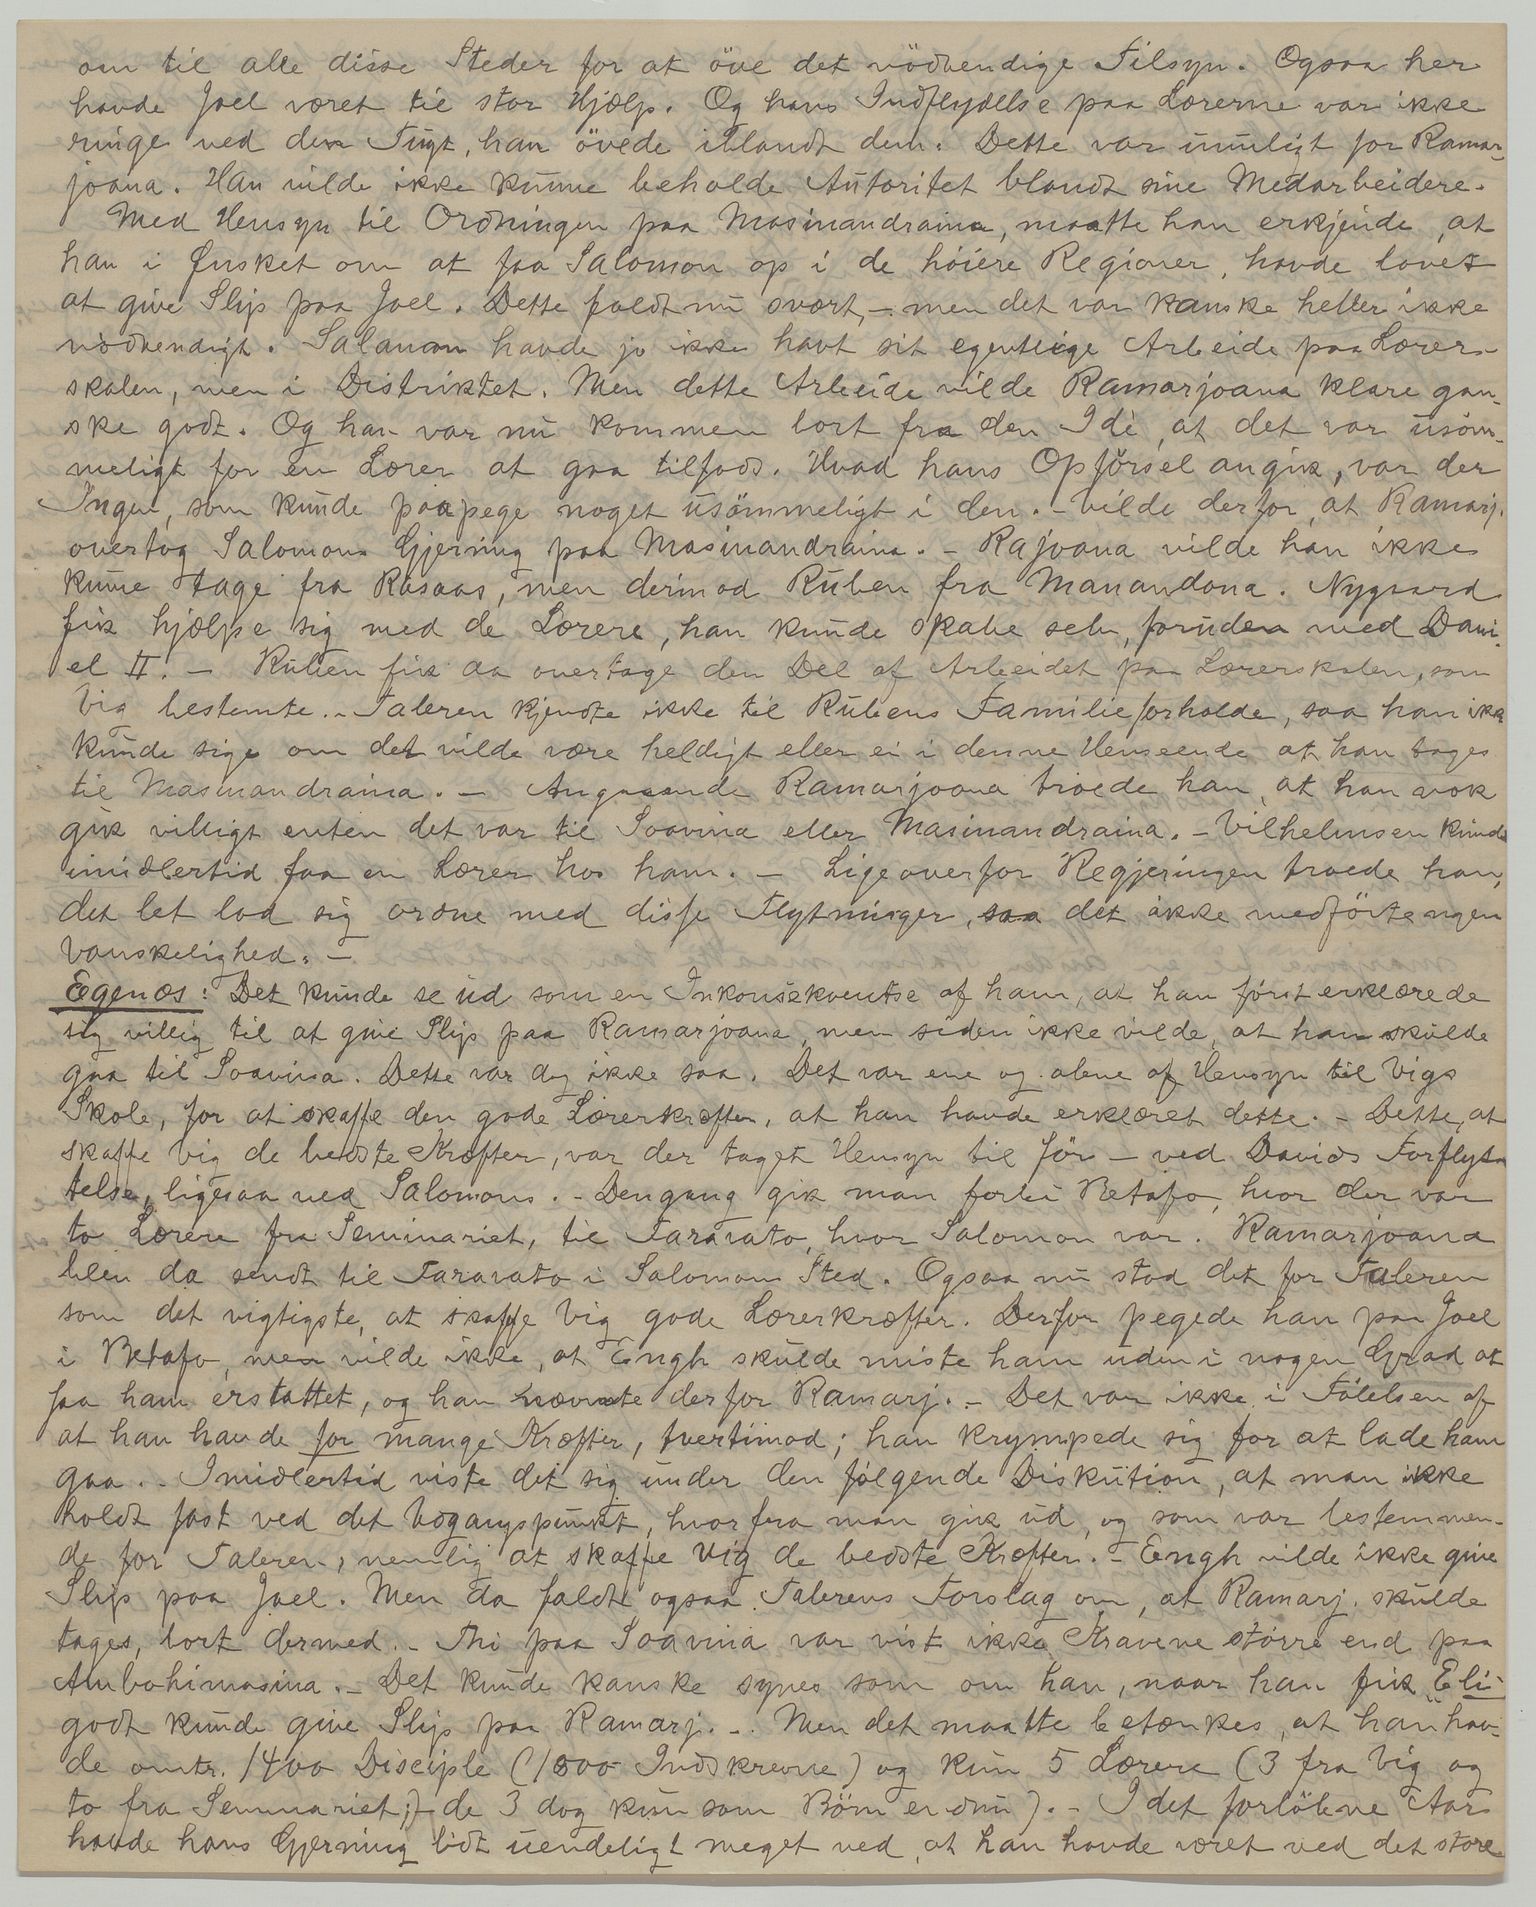 om til alle disse Steder for at öve det nödvendige Tilsyn. Ogsaa her
havde Joel været til stor Hjælp. Og hans Indflydelse paa Lærerne var ikke
ringe ved den Tugt, han övede iblandt dem. Dette var umuligt for Ramar-
joana. Han vilde ikke kunne beholde Autoritet blandt sine Medarbeidere.
Med Hensyn til Ordningen paa Masinandraina, maatte han erkjende, at
han i Ønsket om at faa Salomon op i de höiere Regioner, havde lovet
at give Slip paa Joel. Dette faldt nu svært, - men det var kanske heller ikke
nödvendigt. Salomon havde jo ikke havt sit egentlige Arbeide paa Lærer-
skolen, men i Distriktet. Men dette Arbeide vilde Ramarjoana klare gan-
ske godt. Og han var nu kommen bort fra den Idè, at det var usöm-
meligt for en Lærer at gaa tilfods. Hvad hans Opförsel angik, var der
Ingen, som kunde paapege noget usömmeligt i den. - Vilde derfor, at Ramarj.
overtog Salomons Gjerning paa Masinandraina. - Rajoana vilde han ikke
kunne tage fra Rosaas, men derimod Ruben fra Manandona. Nygaard
fik hjælpe sig med de Lærere, han kunde skabe selv, foruden med Dani-
el II. - Ruben fik da overtage den Del af Arbeidet paa Lærerskolen, som
Vig bestemte. - Taleren kjendte ikke til Rubens Familieforholde, saa han ikke
kunde sige om det vilde være heldigt eller ei i denne Henseende at han toges
til Masinandraina. - Angaaende Ramarjoana troede han, at han nok
gik villigt enten det var til Soavina eller Masinandraina. - Vilhelmsen kunde
imidlertid faa en Lærer hos ham. - Ligeoverfor Regjeringen troede han,
det let lod sig ordne med disse Flytninger, saa det ikke medförte ngen
Vanskelighed. -
Egenæs: Det kunde se ud som en Inkonsekventse af ham, at han först erklærede
sig villig til at give Slip paa Ramarjoana, men siden ikke vilde, at han skulde
gaa til Soavina. Dette var dog ikke saa. Det var ene og alene af Hensyn til Vigs
Skole, for at skaffe den gode Lærerkræfter, at han havde erklæret dette. - Dette, at
skaffe Vig de bedste Kræfter, var der taget Hensyn til för - ved Davids Forflyt-
telse, ligesaa ved Salomons. - Dengang gik man forbi Betafo, hvor der var
to Lærere fra Seminariet, til Faravato, hvor Salomon var. Ramarjoana
blev da sendt til Faravato i Salomons Sted. Ogsaa nu stod det for Taleren
som det vigtigste, at skaffe Vig gode Lærerkræfter. Derfor pegede han paa Joel
i Betafo, men vilde ikke, at Engh skulde miste ham uden i nogen Grad at
faa ham erstattet, og han nævnte derfor Ramarj. - Det var ikke i Følelsen af
at han havde for mange Kræfter, tvertimod; han krympede sig for at lade ham
gaa. - Imidlertid viste det sig under den følgende Diskution, at man ikke
holdt fast ved det Udgangspunkt, hvorfra man gik ud, og som var bestemmen-
de for Taleren, nemlig at skaffe Vig de bedste Kræfter. - Engh vilde ikke give
Slip paa Joel. Men da faldt ogsaa Talerens Forslag om, at Ramarj. skulde
tages, bort dermed. - Thi paa Soavina var vist ikke Kravene større end paa
Ambohimasina. - Det kunde kanske synes som om han, naar han fik "Eli"
godt kunde give Slip paa Ramarj. - Men det maatte betænkes, at han hav-
de omtr. 1400 Disciple (1800 Indskrevne) og kun 5 Lærere (3 fra Vig og
to fra Seminariet;) de 3 dog kun som Börn endnu). - I det forlöbne Aar
havde hans Gjerning lidt uendeligt meget ved, at han havde været ved det store